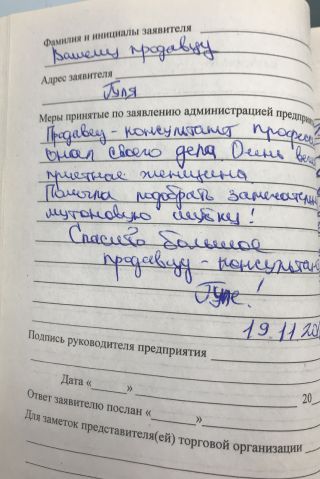 Фамилия и инициалы заявителя
Вашему продавцу
Адрес заявителя
Гуля
Меры принятые по заявлению администрацией предпри
Продавец-консультант професс
знает своего дела. Очень веж
приятная женщина
Помогла подобрать замечательн
мутоновую шубку!
Спасибо большое
продавцу-консультан
Гуле!
19.11.20
Подпись руководителя предприятия
Дата « » 20
Ответ заявителю послан « »
Для заметок представителя(ей) торговой организации